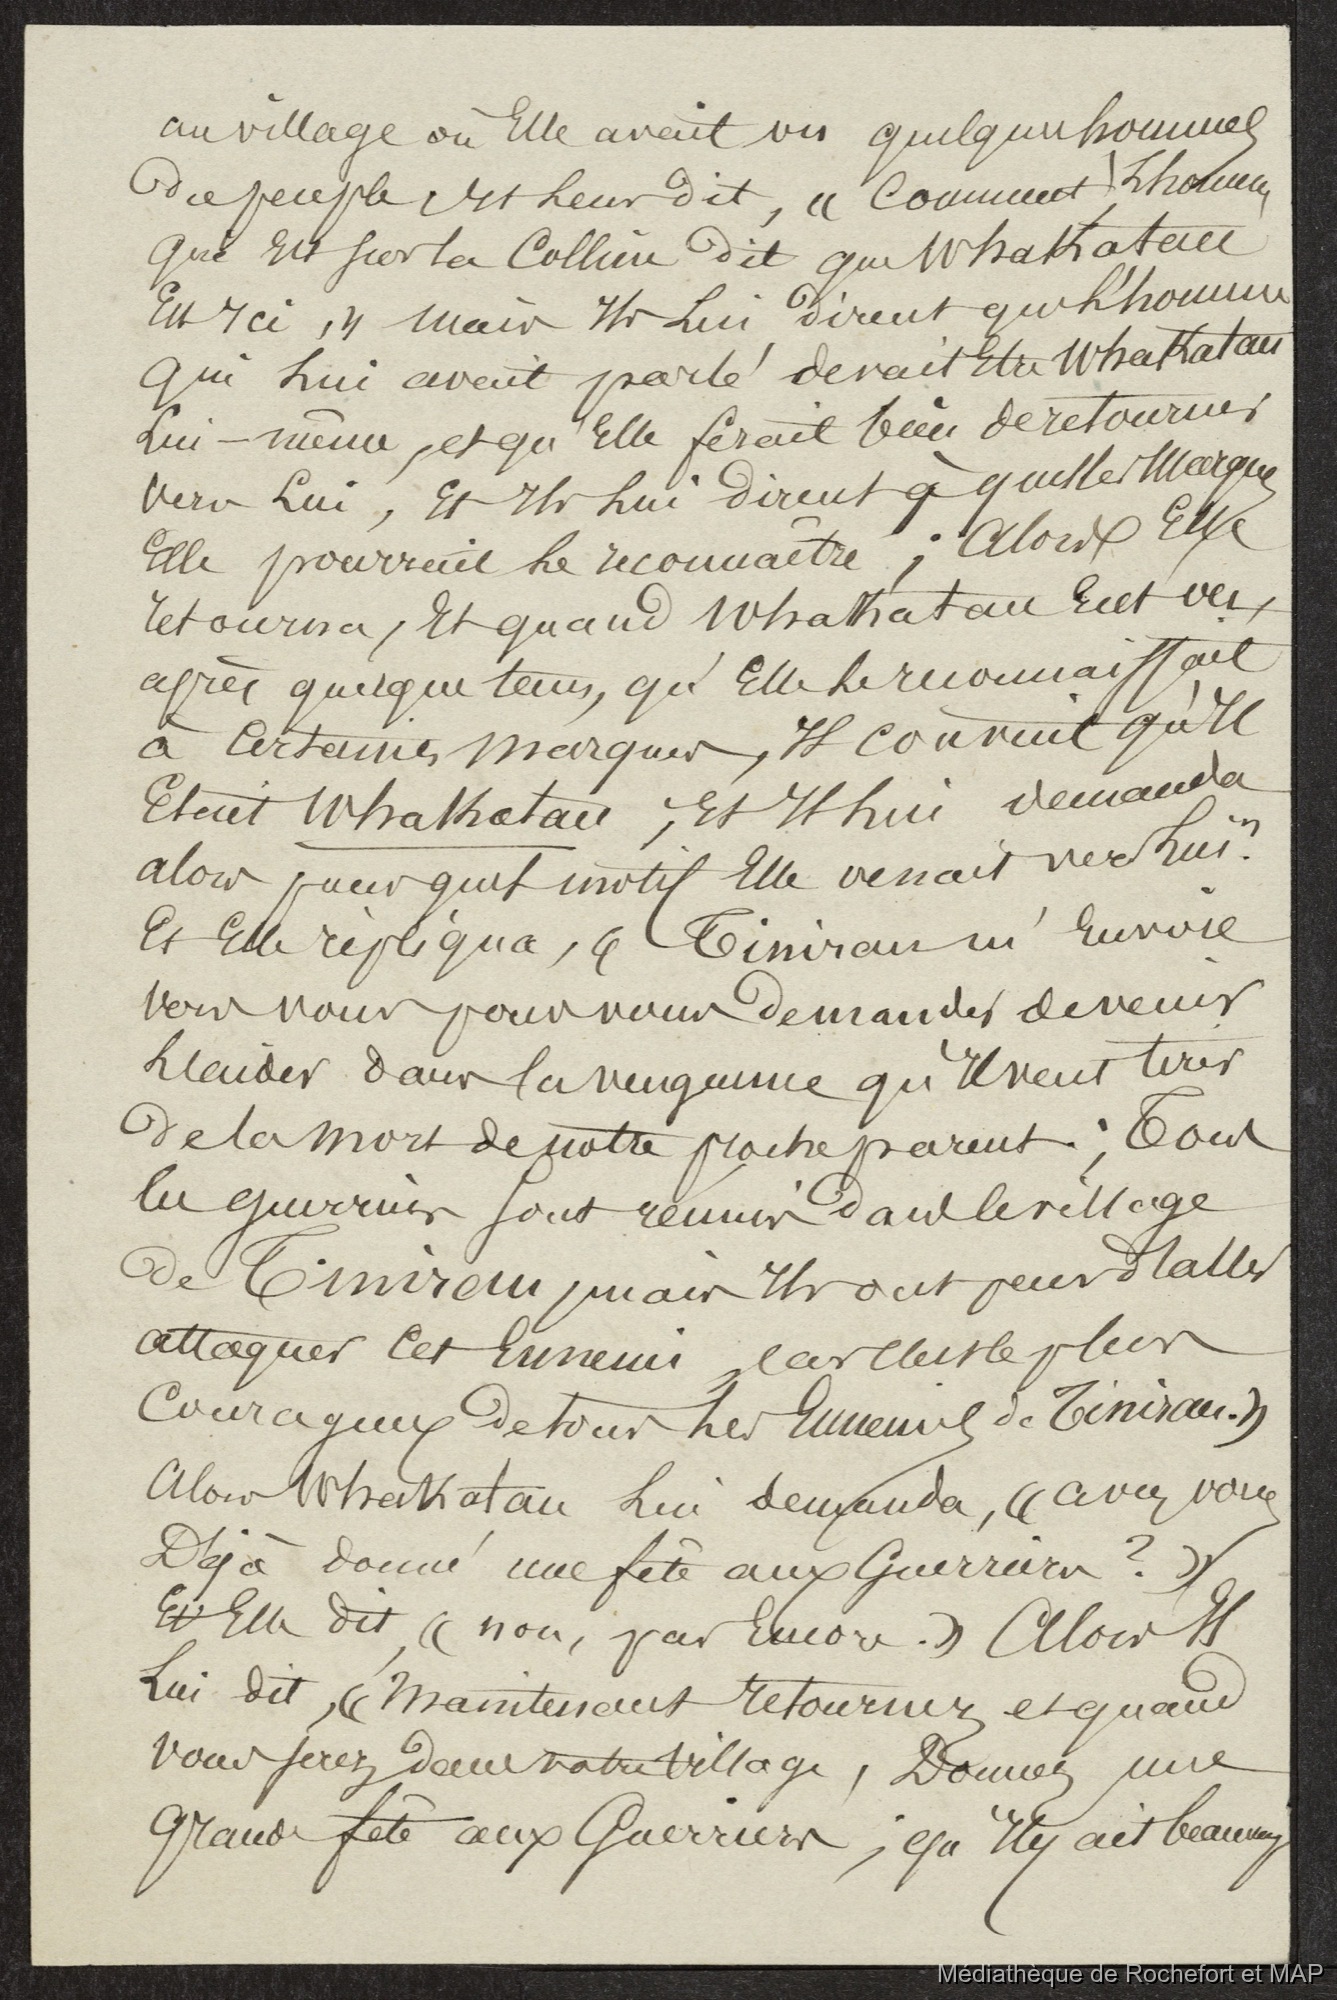 au village où Elle avait vu quelques hommes
Du peuple, Et Leur dit, « Comment ! L'homme
Qui Est sur la Colline dit que Whakatau
Est Ici, » mais Ils Lui dirent que L'homme
Qui Lui avait parlé devait Etre Whakatau
Lui-même, et qu'Elle ferait bien de retourner
vers Lui, Et Ils Lui dirent à quelles Marques
Elle pourrait Le reconnaître ; Alors Elle
retourna, Et quand Whakatau Eut vu,
après quelque tems, qu'Elle Le reconnaissait
à Certaines marques, Il convint qu'Il
Etait Whakatau ; Et Il Lui demanda
alors pour quel motif Elle venait vers Lui ?
Et Elle répliqua, « Tinirau m'Envoie
vers vous pour vous Demander de venir
L'aider dans la vengeance qu'Il veut tirer
De la mort de notre proche parent ; Tous
les guerriers sont réunis Dans le village
De Tinirau, mais Ils ont peur d'aller
attaquer Cet Ennemi, car C'est le plus
Courageux De tous Les Ennemis de Tinirau. »
Alors Whakatau Lui demanda, « avez vous
Déjà donné une fête aux Guerriers ? »
Et Elle dit, « non, pas Encore. » Alors Il
Lui dit, « Maintenant retournez, et quand
vous serez Dans votre village, Donnez une
grande fête aux Guerriers ; qu'Il y ait beaucoup
Médiathèque de Rochefort et MAP